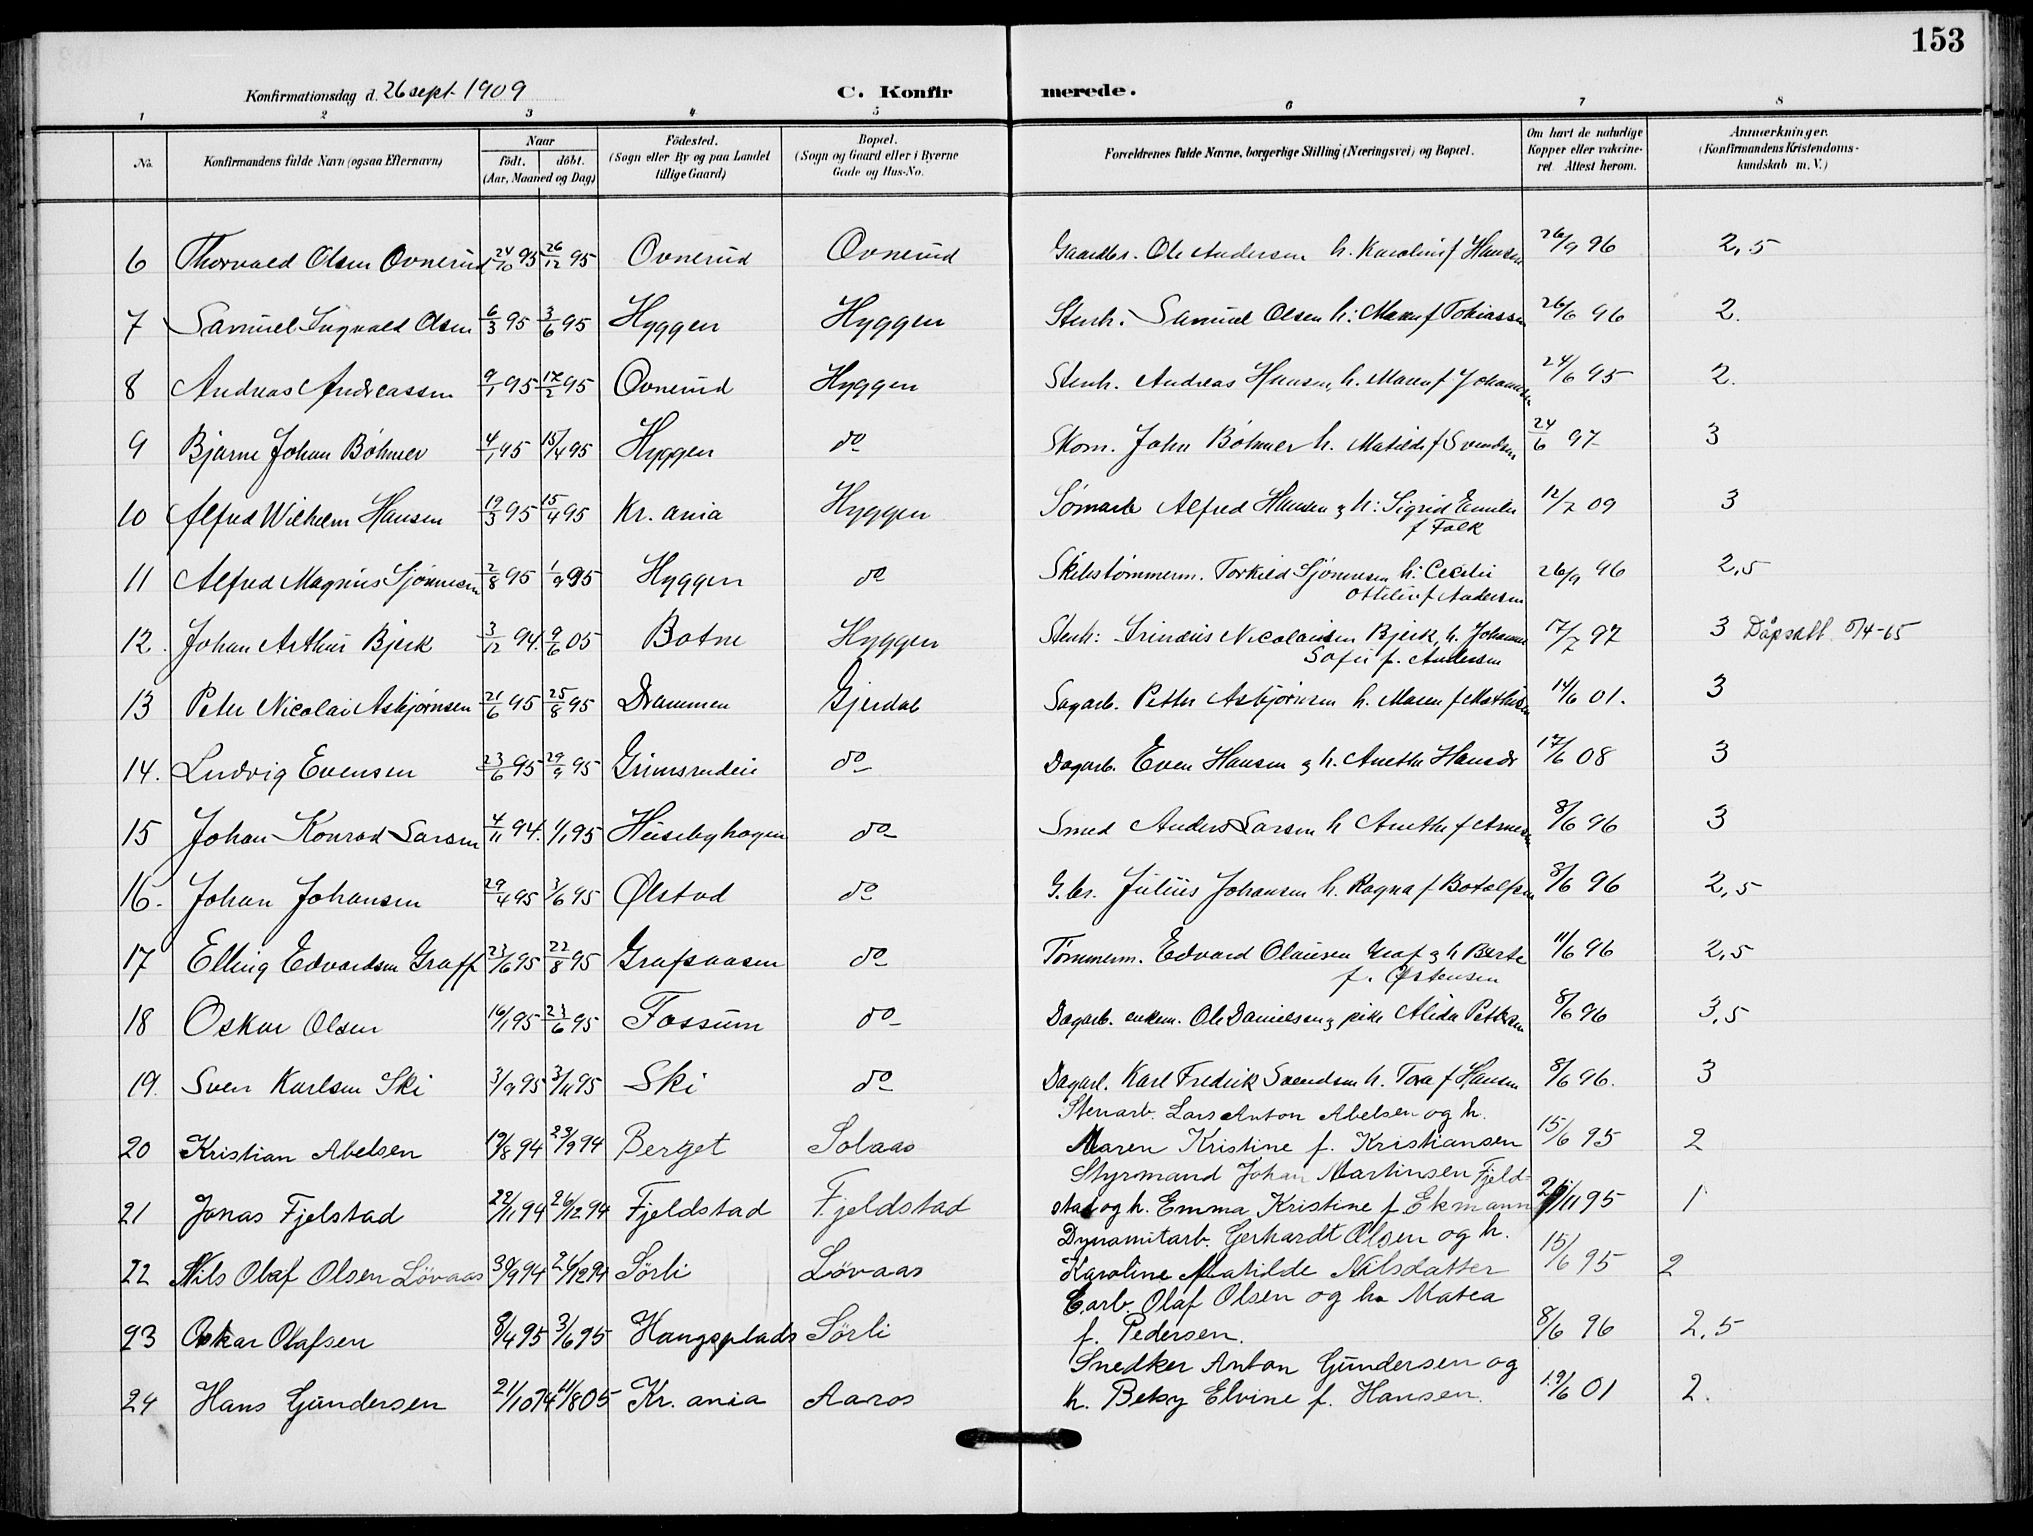 153
Konfirmationsdag d. 26 sept. 1909
C. Konfirmerede.
1 2 3 4 5 6 7 8
No. Konfirmandens fulde Navn (ogsaa Efternavn) Naar födt. döbt. (Aar, Maaned og Dag) Födested. (Sogn eller By og paa Landet tillige Gaard) Bopæl. (Sogn og Gaard eller i Byerne Gade og Hus-No. Forældrenes fulde Navne, borgerlige Stilling (Næringsvei) og Bopæl. Om havt de naturlige Kopper eller vakcineret. Attest herom. Anmærkninger. (Konfirmandens Kristendomskundskab m. V.)
6 Thorvald Olsen Ovnerud 24/10 95 26/12 95 Ovnerud Ovnerud Gaardbr. Ole Andersen h. Karoline f Hansen 26/9 96 2,5
7 Samuel Ingvald Olsen 6/3 95 3/6 95 Hyggen Hyggen Stenh: Samuel Olsen h: Maren f Tobiassen 26/6 96 2.
8 Andreas Andreassen 9/1 95 17/2 95 Ovnerud Hyggen Stenh. Andreas Hansen, h. Maren f Johansen 24/6 95 2.
9 Bjarne Johan Böhmer 4/1 95 15/4 95 Hyggen do Skom. John Böhmer h. Matilde f Svendsen 24/6 97 3
10 Alfred Wilhelm Hansen 19/3 95 15/4 95 Kr. ania Hyggen Sömarb Alfred Hansen & h: Sigrid Emilie f Falk 12/7 09 3
11 Alfred Magnus Sjönnesen 2/8 95 1/9 95 Hyggen do Skibstömmerm. Torkild Sjönnesen h: Cecilie Ottilie f Andersen 26/9 96 2,5
12. Johan Arthur Bjerk 3/12 94. 9/6 05 Botne Hyggen Stenh: Nicolaisen Bjerk, h. Johanne Sofie f. Andersen 17/7 97 3 Dåpsatt. 5/4-65
13 Peter Nicolai Asbjörnsen 21/6 95 25/8 95 Drammen Gjerdal Sagarb. Petter Asbjörnsen h. Maren f Mathisen 14/6 01. 3
14. Ludvig Evensen 23/6 95 29/9 95 Grimsrudeie do Dagarb. Even Hansen & h. Anethe Hansdr 17/6 08 3
15 Johan Konrad Larsen 4/11 94. 1/1 95 Heisebyhagen do Smed Anders Larsen h Anethe f Arnesen 8/6 96 3
16. Johan Johansen 29/4 95 3/6 95 Ølstad do G. br. Julius Johansen h. Ragna f Botolfsen 8/6 96 2,5
17 Elling Edvardsen Graff 23/6 95 22/8 95 Grafsaasen do Tömmerm. Edvard Olausen Graf & h Berte f. Østensen 11/6 96 2,5
18 Oskar Olsen 16/1 95 23/6 95 Fossum do Dagarb. enkem. Ole Danielsen & pike Alida Pettersen 8/6 96 3,5
19. Sven Karlsen Ski 3/9 95 3/11 95 Ski do Dagarb. Karl Fredrik Svendsen h. Tora f Hansen 8/6 96. 3
20 Kristian Abelsen 19/8 94 23/9 94 Berget Solaas Stenarb. Lars Anton Abelsen og h. Maren Kristine f. Kristiansen 15/6 95 2
21 Jonas Fjelstad 22/11 94 26/12 94 Fjeldstad Fjeldstad Styrmand Johan Martinsen Fjeldstad og h. Emma Kristine f. Ekmann /11 95 1
22 Nils Olaf Olsen Lövaas 30/9 94 26/12 94 Sörli Lövaas Dynamitarb. Gerhardt Olsen og h. Karoline Matilde Nilsdatter 15/6 95 2
23 Oskar Olafsen 8/4 95 3/6 95 Haugsplads Sörli E. arb. Olaf Olsen og h. Matea f. Pedersen. 8/6 96 2,5
24 Hans Gundersen 21/10 94 11/8 05 Kr. ania Aaros Snedker Anton Gundersen og h. Betsy Elvine f. Hansen. 19/6 01 2.